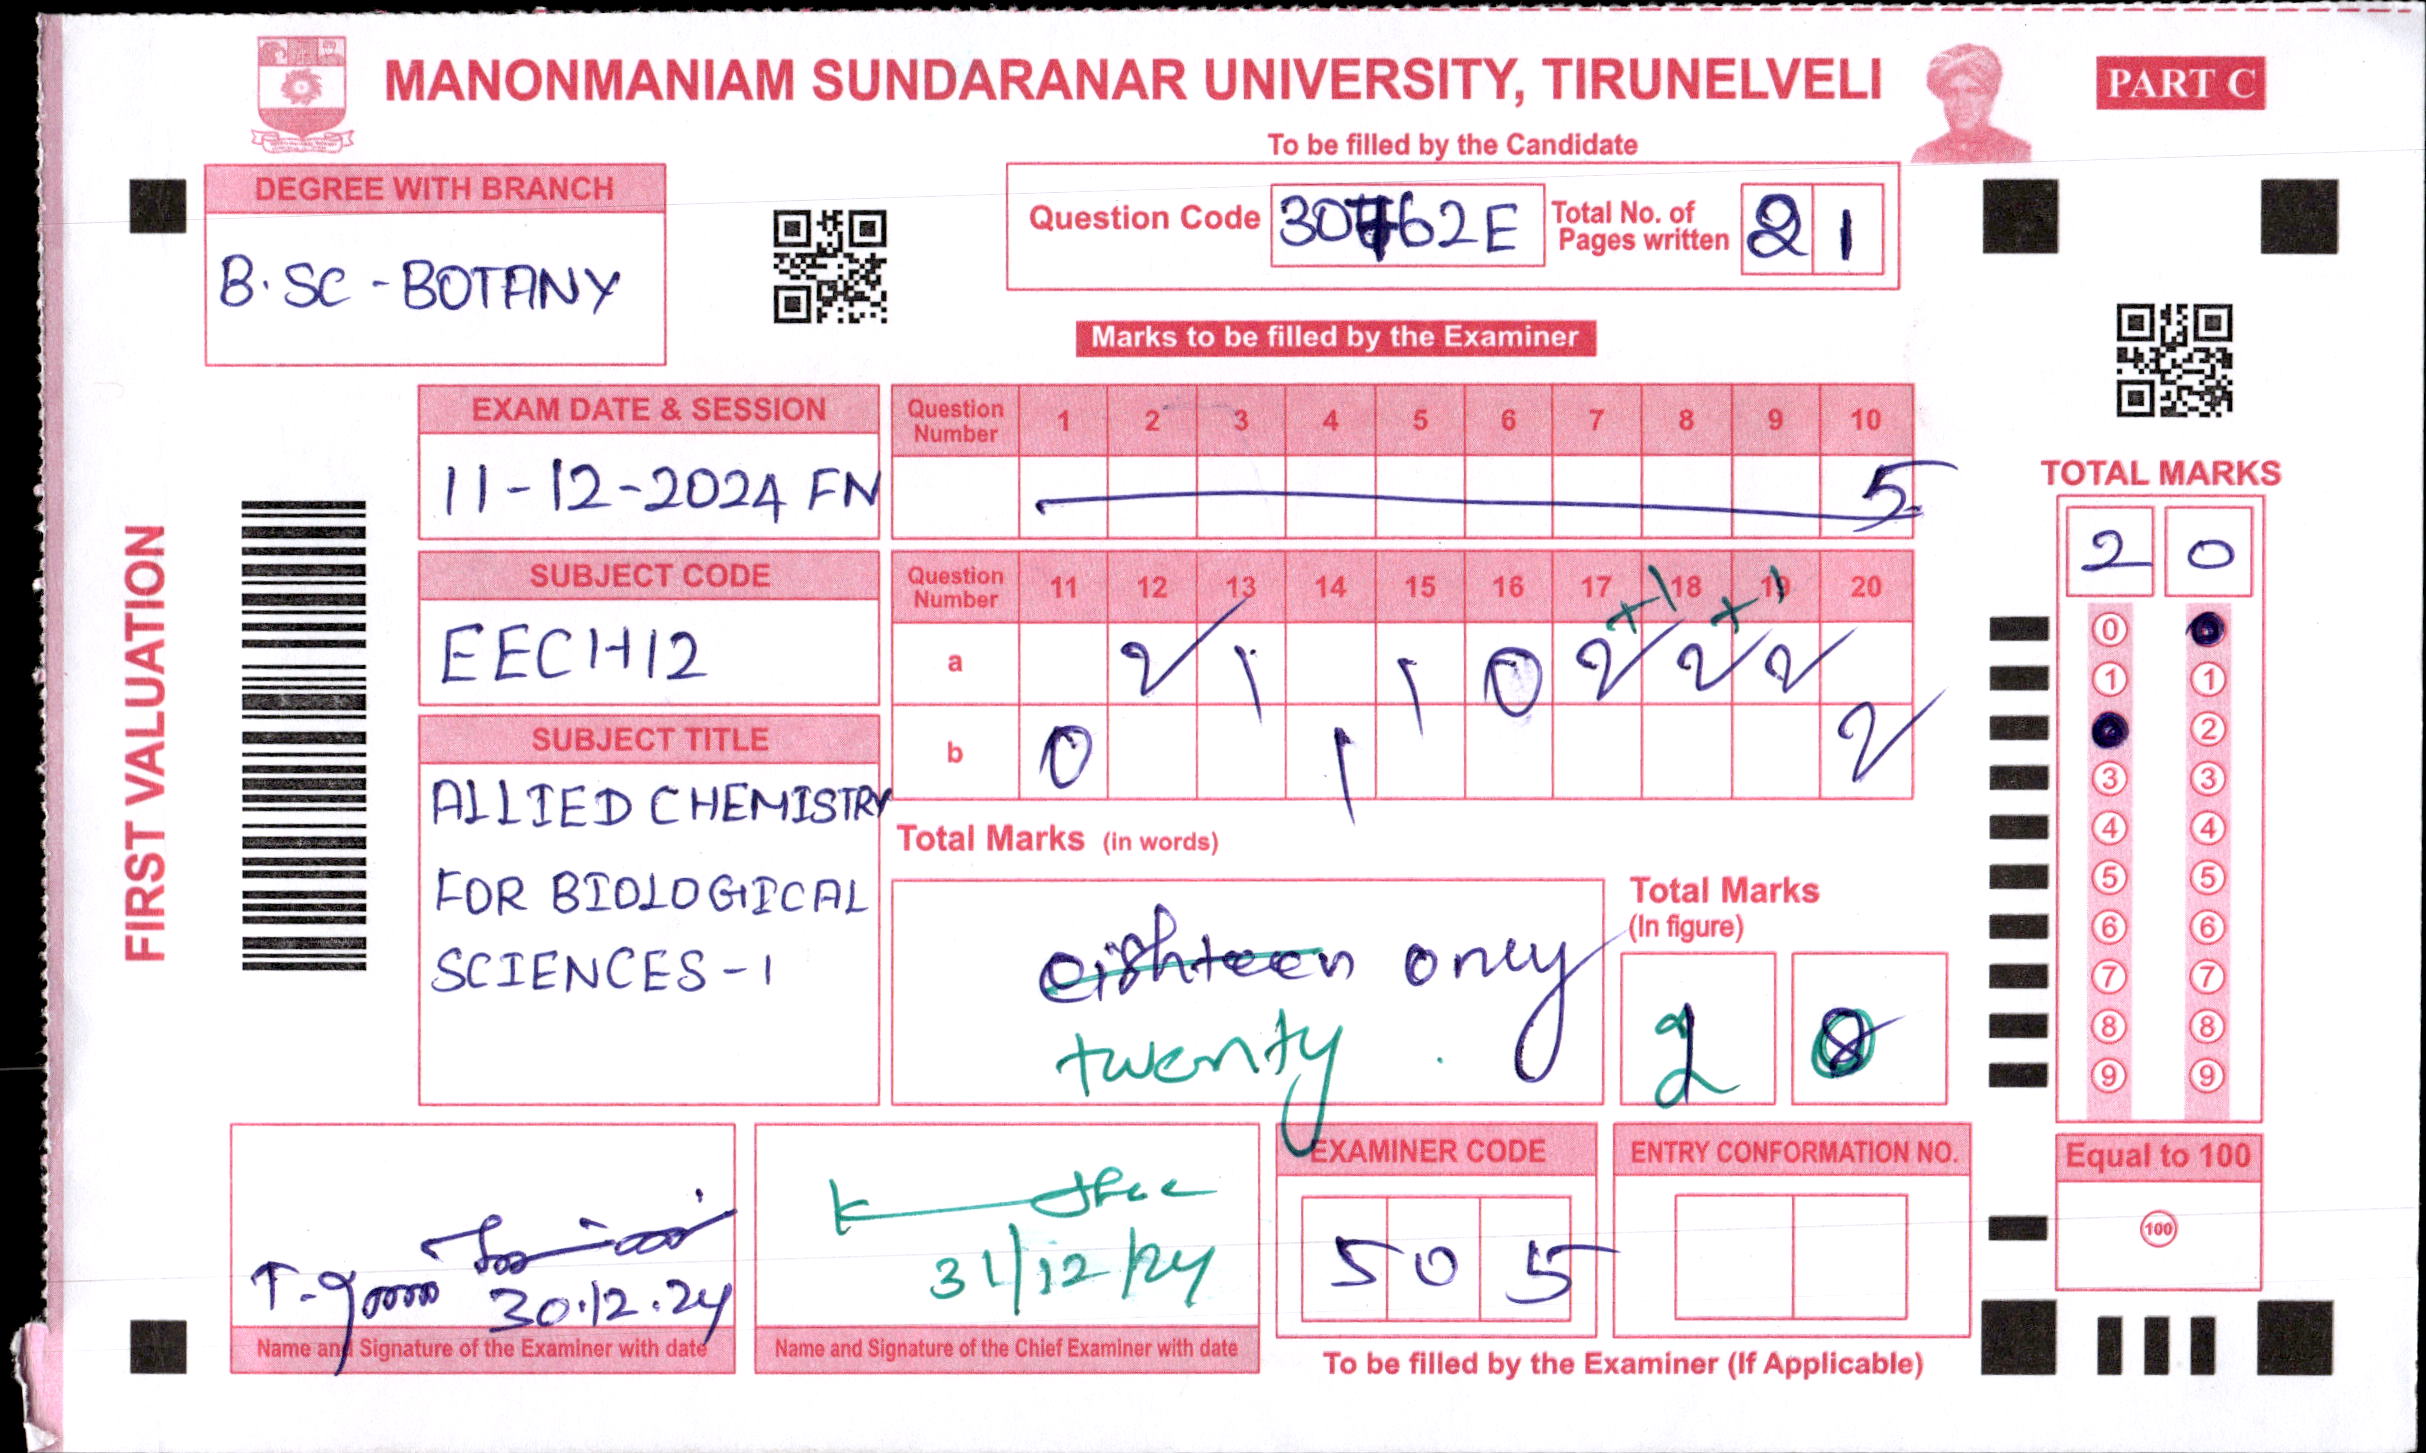 MANONMANIAM SUNDARANAR UNIVERSITY, TIRUNELVELI
PART C
To be filled by the Candidate
DEGREE WITH BRANCH
B.SC - BOTANY
Question Code 30762E
Total No. of Pages written 21
Marks to be filled by the Examiner
EXAM DATE & SESSION
11-12-2024 FN
Question Number 1 2 3 4 5 6 7 8 9 10
5
SUBJECT CODE
EECH12
Question Number 11 12 13 14 15 16 17 18 19 20
+1 +1
a 2 1 1 0 2 2 2
b 0 1 2
SUBJECT TITLE
ALLIED CHEMISTRY
FOR BIOLOGICAL
SCIENCES-I
Total Marks (in words)
eighteen only
twenty
Total Marks
(In figure)
20
FIRST VALUATION
TOTAL MARKS
2 0
0 0
1 1
2 2
3 3
4 4
5 5
6 6
7 7
8 8
9 9
Equal to 100
100
30.12.24
Name and Signature of the Examiner with date
31/12/24
Name and Signature of the Chief Examiner with date
EXAMINER CODE
5 0 5
ENTRY CONFORMATION NO.
To be filled by the Examiner (If Applicable)